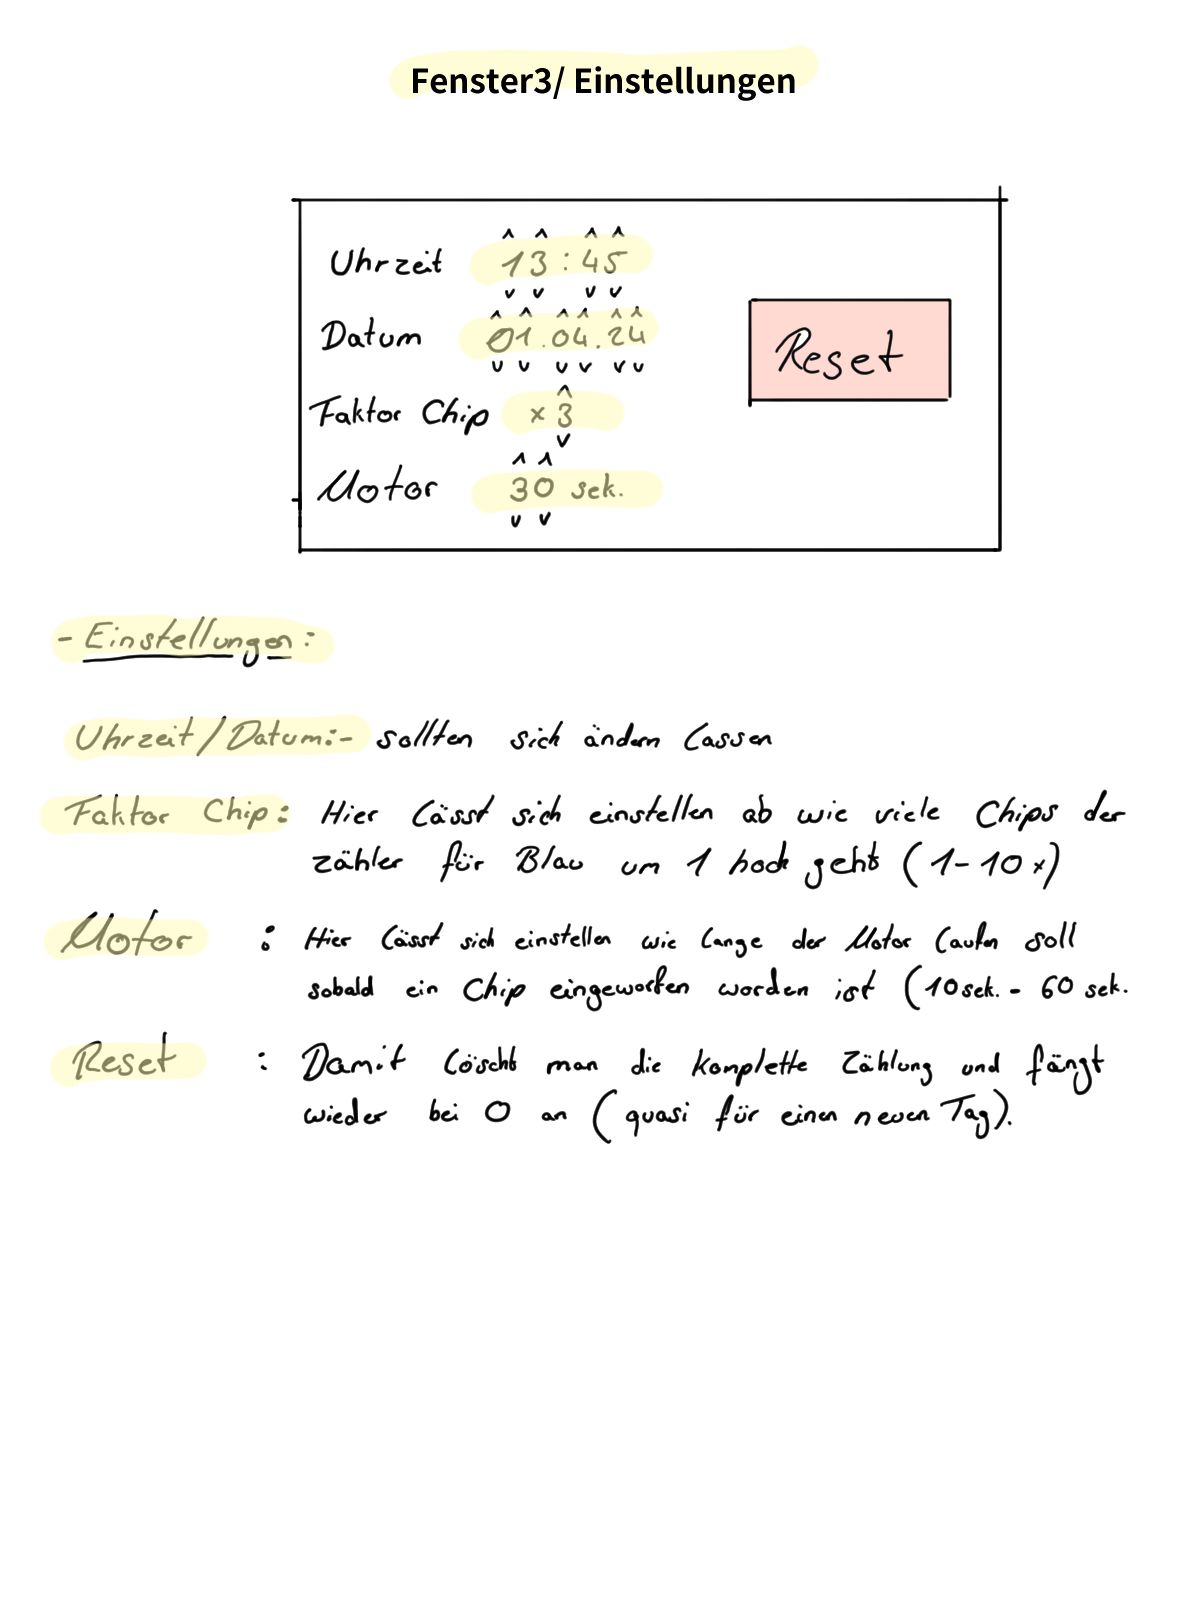 Fenster3/ Einstellungen
Uhrzeit 13:45
Datum 01.04.24
Reset
Faktor Chip x 3
Motor 30 sek.
- Einstellungen:
Uhrzeit/Datum:- sollten sich ändern lassen
Faktor Chip: Hier lässt sich einstellen ab wie viele Chips der
zähler für Blau um 1 hoch geht (1-10x)
Motor : Hier lässt sich einstellen wie lange der Motor laufen soll
sobald ein Chip eingeworfen worden ist (10sek. - 60 sek.
Reset : Damit löscht man die komplette Zählung und fängt
wieder bei 0 an (quasi für einen neuen Tag).